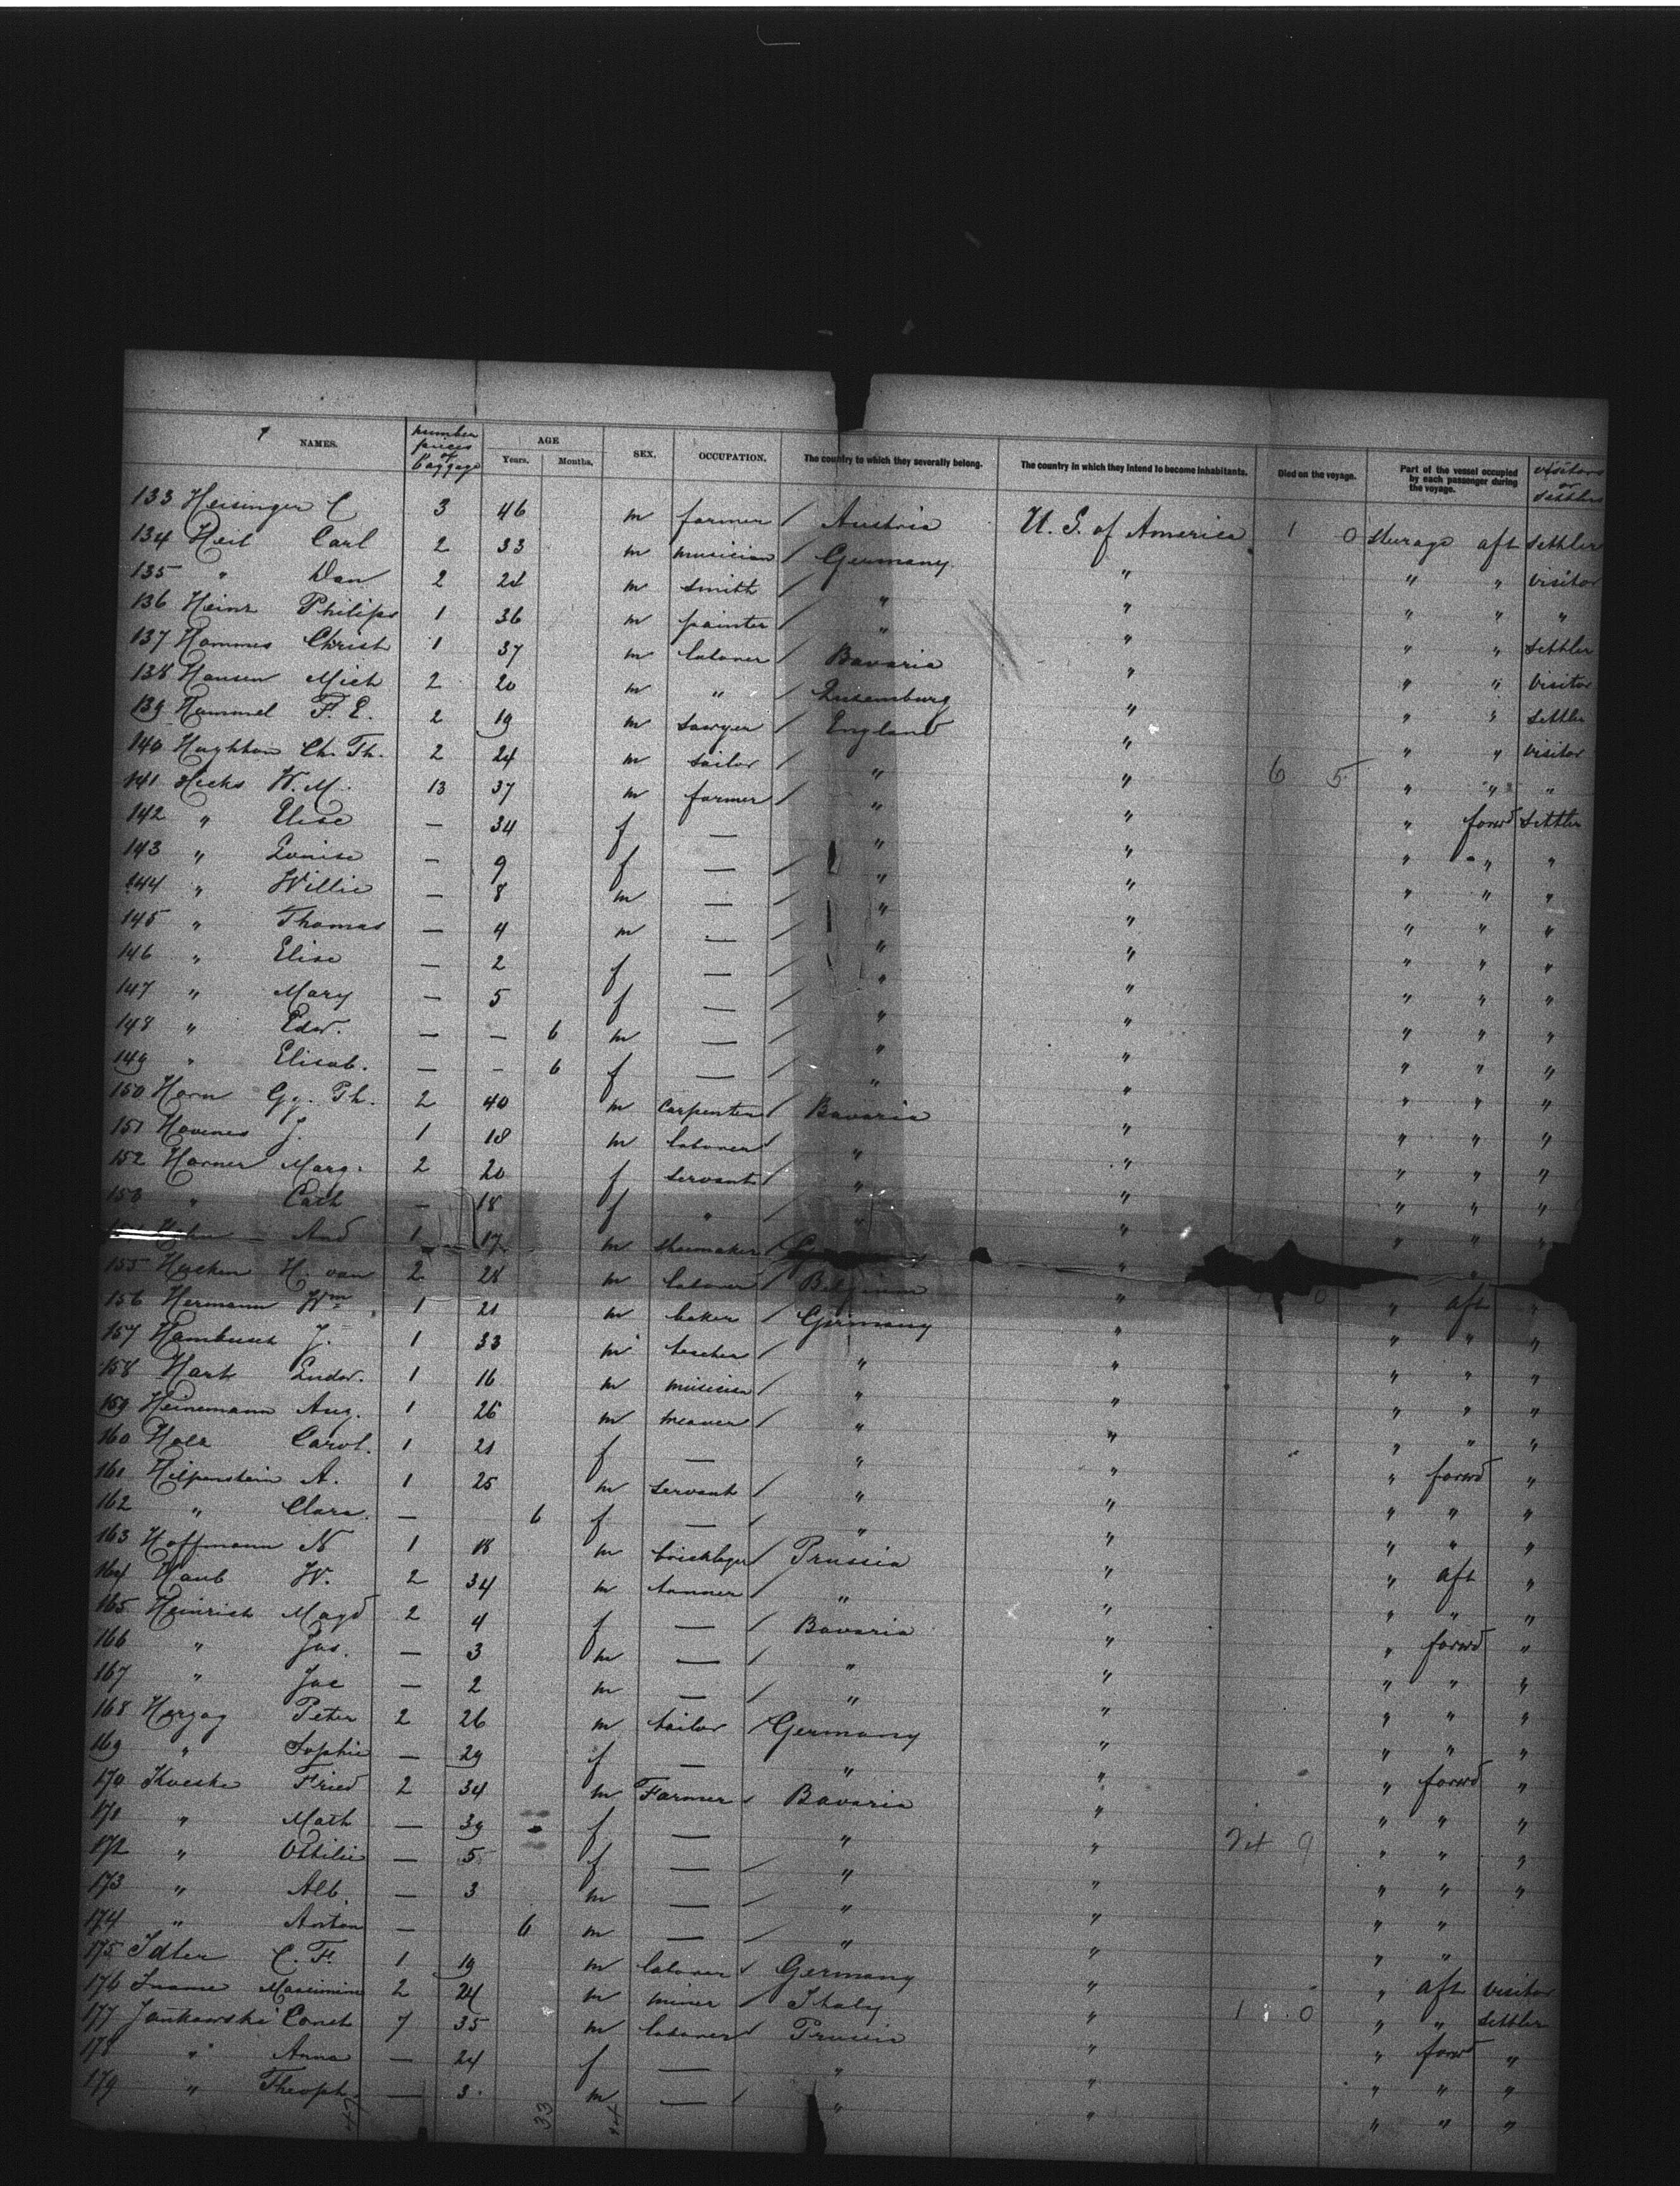 NAMES. number pieces of baggage AGE Years. Months. SEX. OCCUPATION. The country to which they severally belong. The country in which they intend to become inhabitants. Died on the voyage. Part of the vessel occupied by each passenger during the voyage. visitors or settlers
133 Heisinger C 3 46 m farmer / Austria U. S. of America 1 0 Steerage aft settler
134 Heil Carl 2 33 m musician / Germany " " " visitor
135 " Dan 2 28 m smith / " " " " "
136 Heinr Philipp 1 36 m painter / " " " " settler
137 Hammes Christ 1 37 m laborer / Bavaria " " " visitor
138 Hansen Mich 2 20 m " / Luxemburg " " " settler
139 Hummel F. E. 2 19 m sawyer / England " " " visitor
140 Haghton Ch. Th. 2 24 m sailor / " " 6 5 " " "
141 Hicks W. M. 13 37 m farmer / " " " forwd settler
142 " Elise — 34 f — " " " " "
143 " Louise — 9 f — / " " " " "
144 " Willie — 8 m — / " " " " "
145 " Thomas — 4 m — / " " " " "
146 " Elise — 2 f — / " " " " "
147 " Mary — 5 f — / " " " " "
148 " Edw. — — 6 m — / " " " " "
149 " Elisab. — - 6 f — / " " " " "
150 Horn Gg. Th. 2 40 m carpenter / Bavaria " " " "
151 J. 1 18 m laborer / " " " " "
152 Horner Marg. 2 20 f servant / " " " " "
153 " Cath — 18 f " / " " " " "
And 1 17 m shoemaker / Germany " "
155 H. van 2 28 m laborer / Belgium " 0 " aft "
156 Hermann Wm 1 21 m baker / Germany " " " "
157 J. 1 33 m teacher / " " " " "
158 Hart Ludw. 1 16 m musician / " " " " "
159 Heinemann Aug. 1 26 m weaver / " " " " "
160 Carol. 1 21 f — " " " forwd "
161 Hilpenstein A. 1 25 m servant / " " " " "
162 " Clara. — 6 f — / " " " " "
163 Hoffmann N 1 18 m bricklayer / Prussia " " aft "
164 Haub W. 2 34 m tanner / " " " " "
165 Heinrich Magd 2 4 f — / Bavaria " " forwd "
166 " Jos. — 3 m — / " " " " "
167 " Jac — 2 m — / " " " " "
168 Herzog Peter 2 26 m tailor / Germany " " " "
169 " Sophie — 29 f — " " " forwd "
170 Fried 2 34 m Farmer / Bavaria " " " "
171 " Math — 39 f — " " 24 9 " " "
172 " Ottilie — 5 f — / " " " " "
173 " Alb. — 3 m — / " " " "
174 " Anton — 6 m — / " " " "
175 Idler C. Fr. 1 19 m laborer / Germany " " aft visitor
176 2 24 m miner / Italy " 1 0 " " settler
177 Jankowski Const 7 35 m laborer / Prussia " " forwd "
178 " Anna — 24 f — " " " " "
179 " Theoph. — 3 m — / " " " " "
33